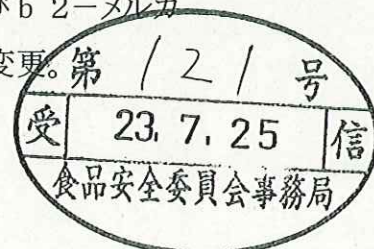 b 2-メルカ
変更。
第 121 号
受 23.7.25 信
食品安全委員会事務局